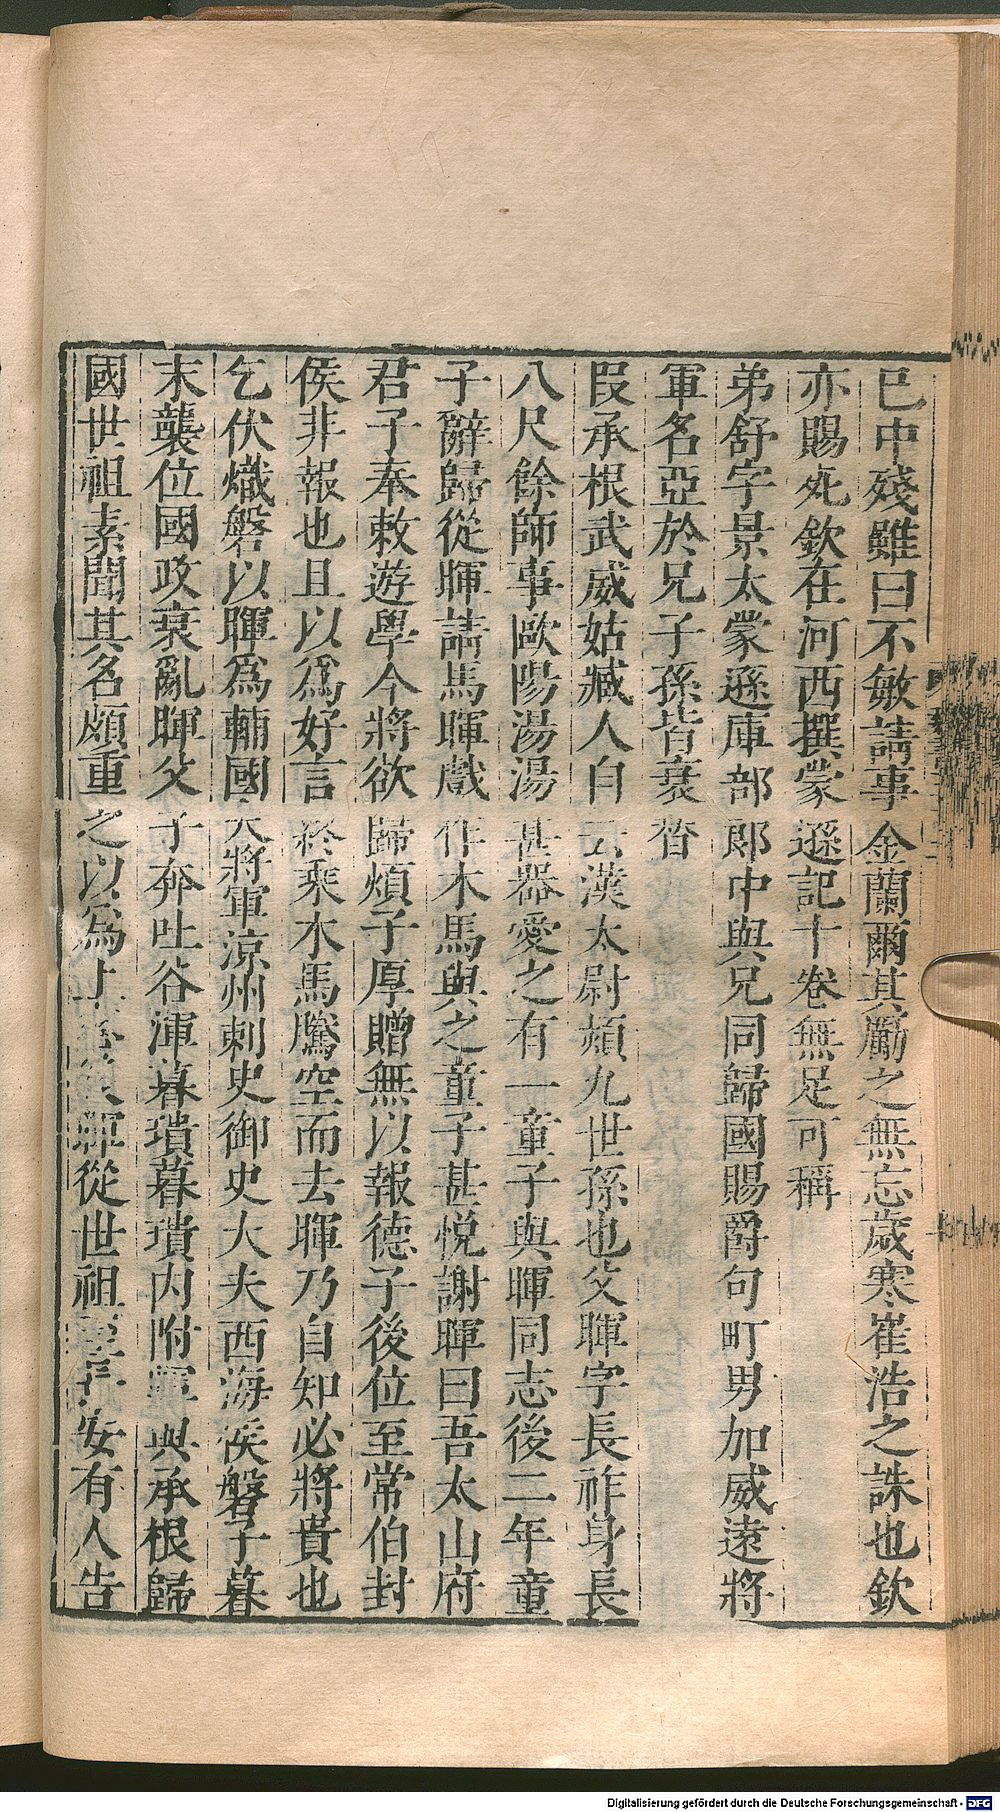 已中殘雖曰不敏請事金蘭爾其勵之無忘歲寒崔浩之誅也欽
亦賜死欽在河西撰蒙遜記十卷無足可稱
弟舒字景太蒙遜庫部郎中與兄同歸國賜爵句町男加威遠將
軍名亞於兄子孫皆衰替
段承根武威姑臧人自云漢太尉熲九世孫也父暉字長祚身長
八尺餘師事歐陽湯湯甚器愛之有一童子與暉同志後二年童
子辭歸從暉請馬暉戲作木馬與之童子甚悅謝暉曰吾太山府
君子奉敕遊學今將欲歸煩子厚贈無以報德子後位至常伯封
侯非報也且以為好言終乘木馬騰空而去暉乃自知必將貴也
乞伏熾磐以暉為輔國大將軍涼州刺史御史大夫西海侯磐子暮
末襲位國政衰亂暉父子奔吐谷渾暮璝暮璝內附暉與承根歸
國世祖素聞其名頗重之以為上暉從世祖至長安有人告
Digitalisierung gefördert durch die Deutsche Forschungsgemeinschaft - DFG